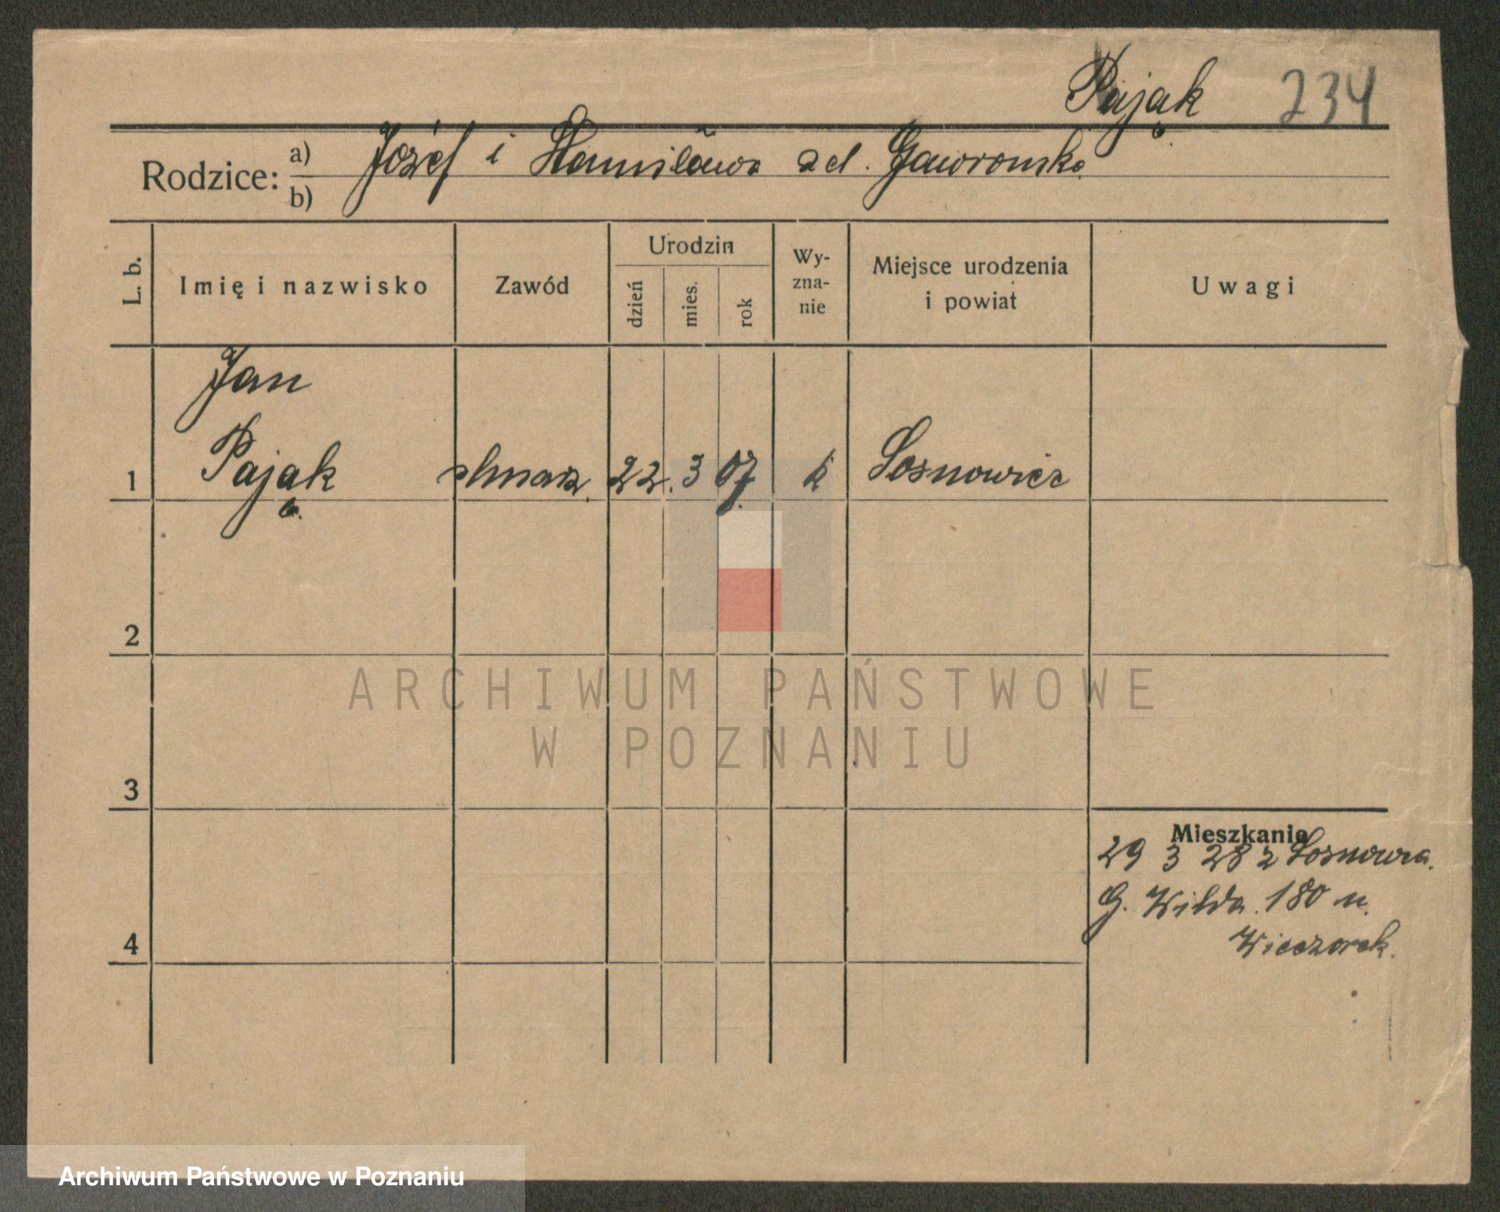 Pająk 234
Rodzice: a) Józef i Stanisława zd. Gaworonska
b)
L. b.
Imię i nazwisko
Zawód
Urodzin
dzień
mies.
rok
Wy-
zna-
nie
Miejsce urodzenia
i powiat
Uwagi
Jan
1 Pająk 22. 3 07 k Sosnowiec
2
3
4
Mieszkanie
29 3 28 z Sosnowca.
G. Wilda 180 u.
Wieczorek.
ARCHIWUM PAŃSTWOWE
W POZNANIU
Archiwum Państwowe w Poznaniu